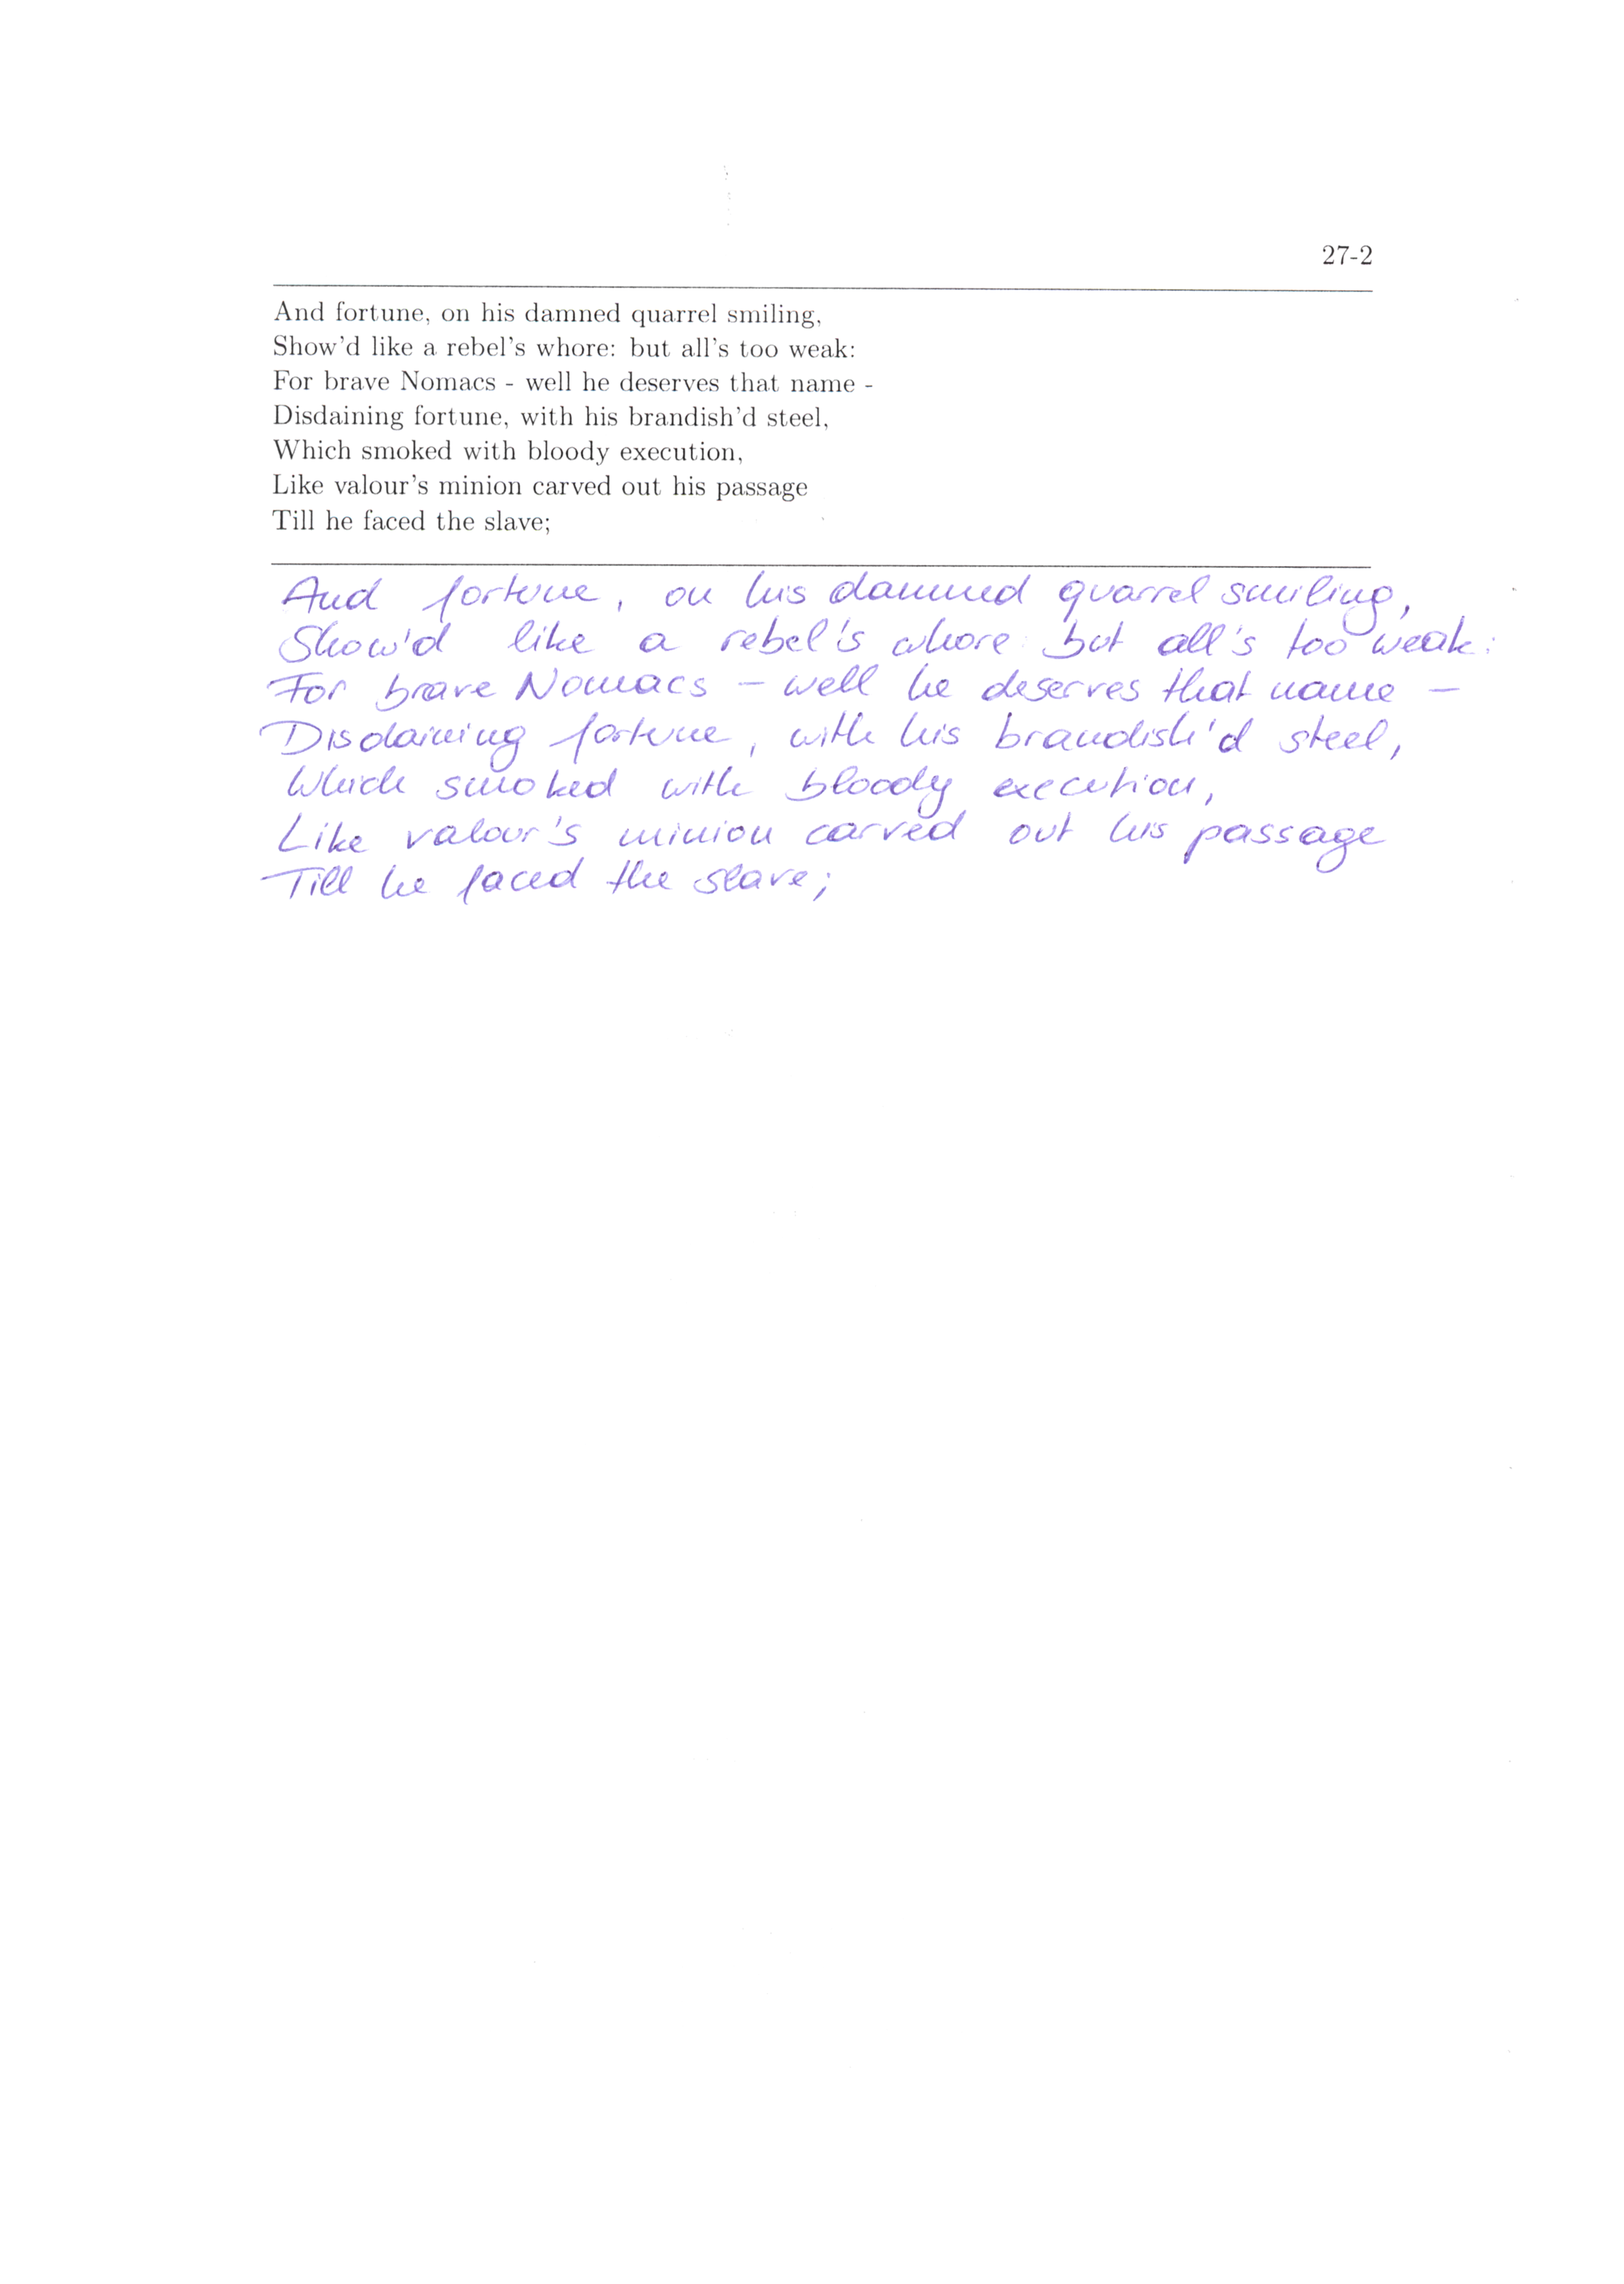 27-2
And fortune, on his damned quarrel smiling,
Show'd like a rebel's whore: but all's too weak:
For brave Nomacs - well he deserves that name -
Disdaining fortune, with his brandish'd steel,
Which smoked with bloody execution,
Like valour's minion carved out his passage
Till he faced the slave;
And fortune, on his damned quarrel smiling,
Show'd like a rebel's whore: but all's too weak:
For brave Nomacs – well he deserves that name –
Disdaining fortune, with his brandish'd steel,
Which smoked with bloody execution,
Like valour's minion carved out his passage
Till he faced the slave;